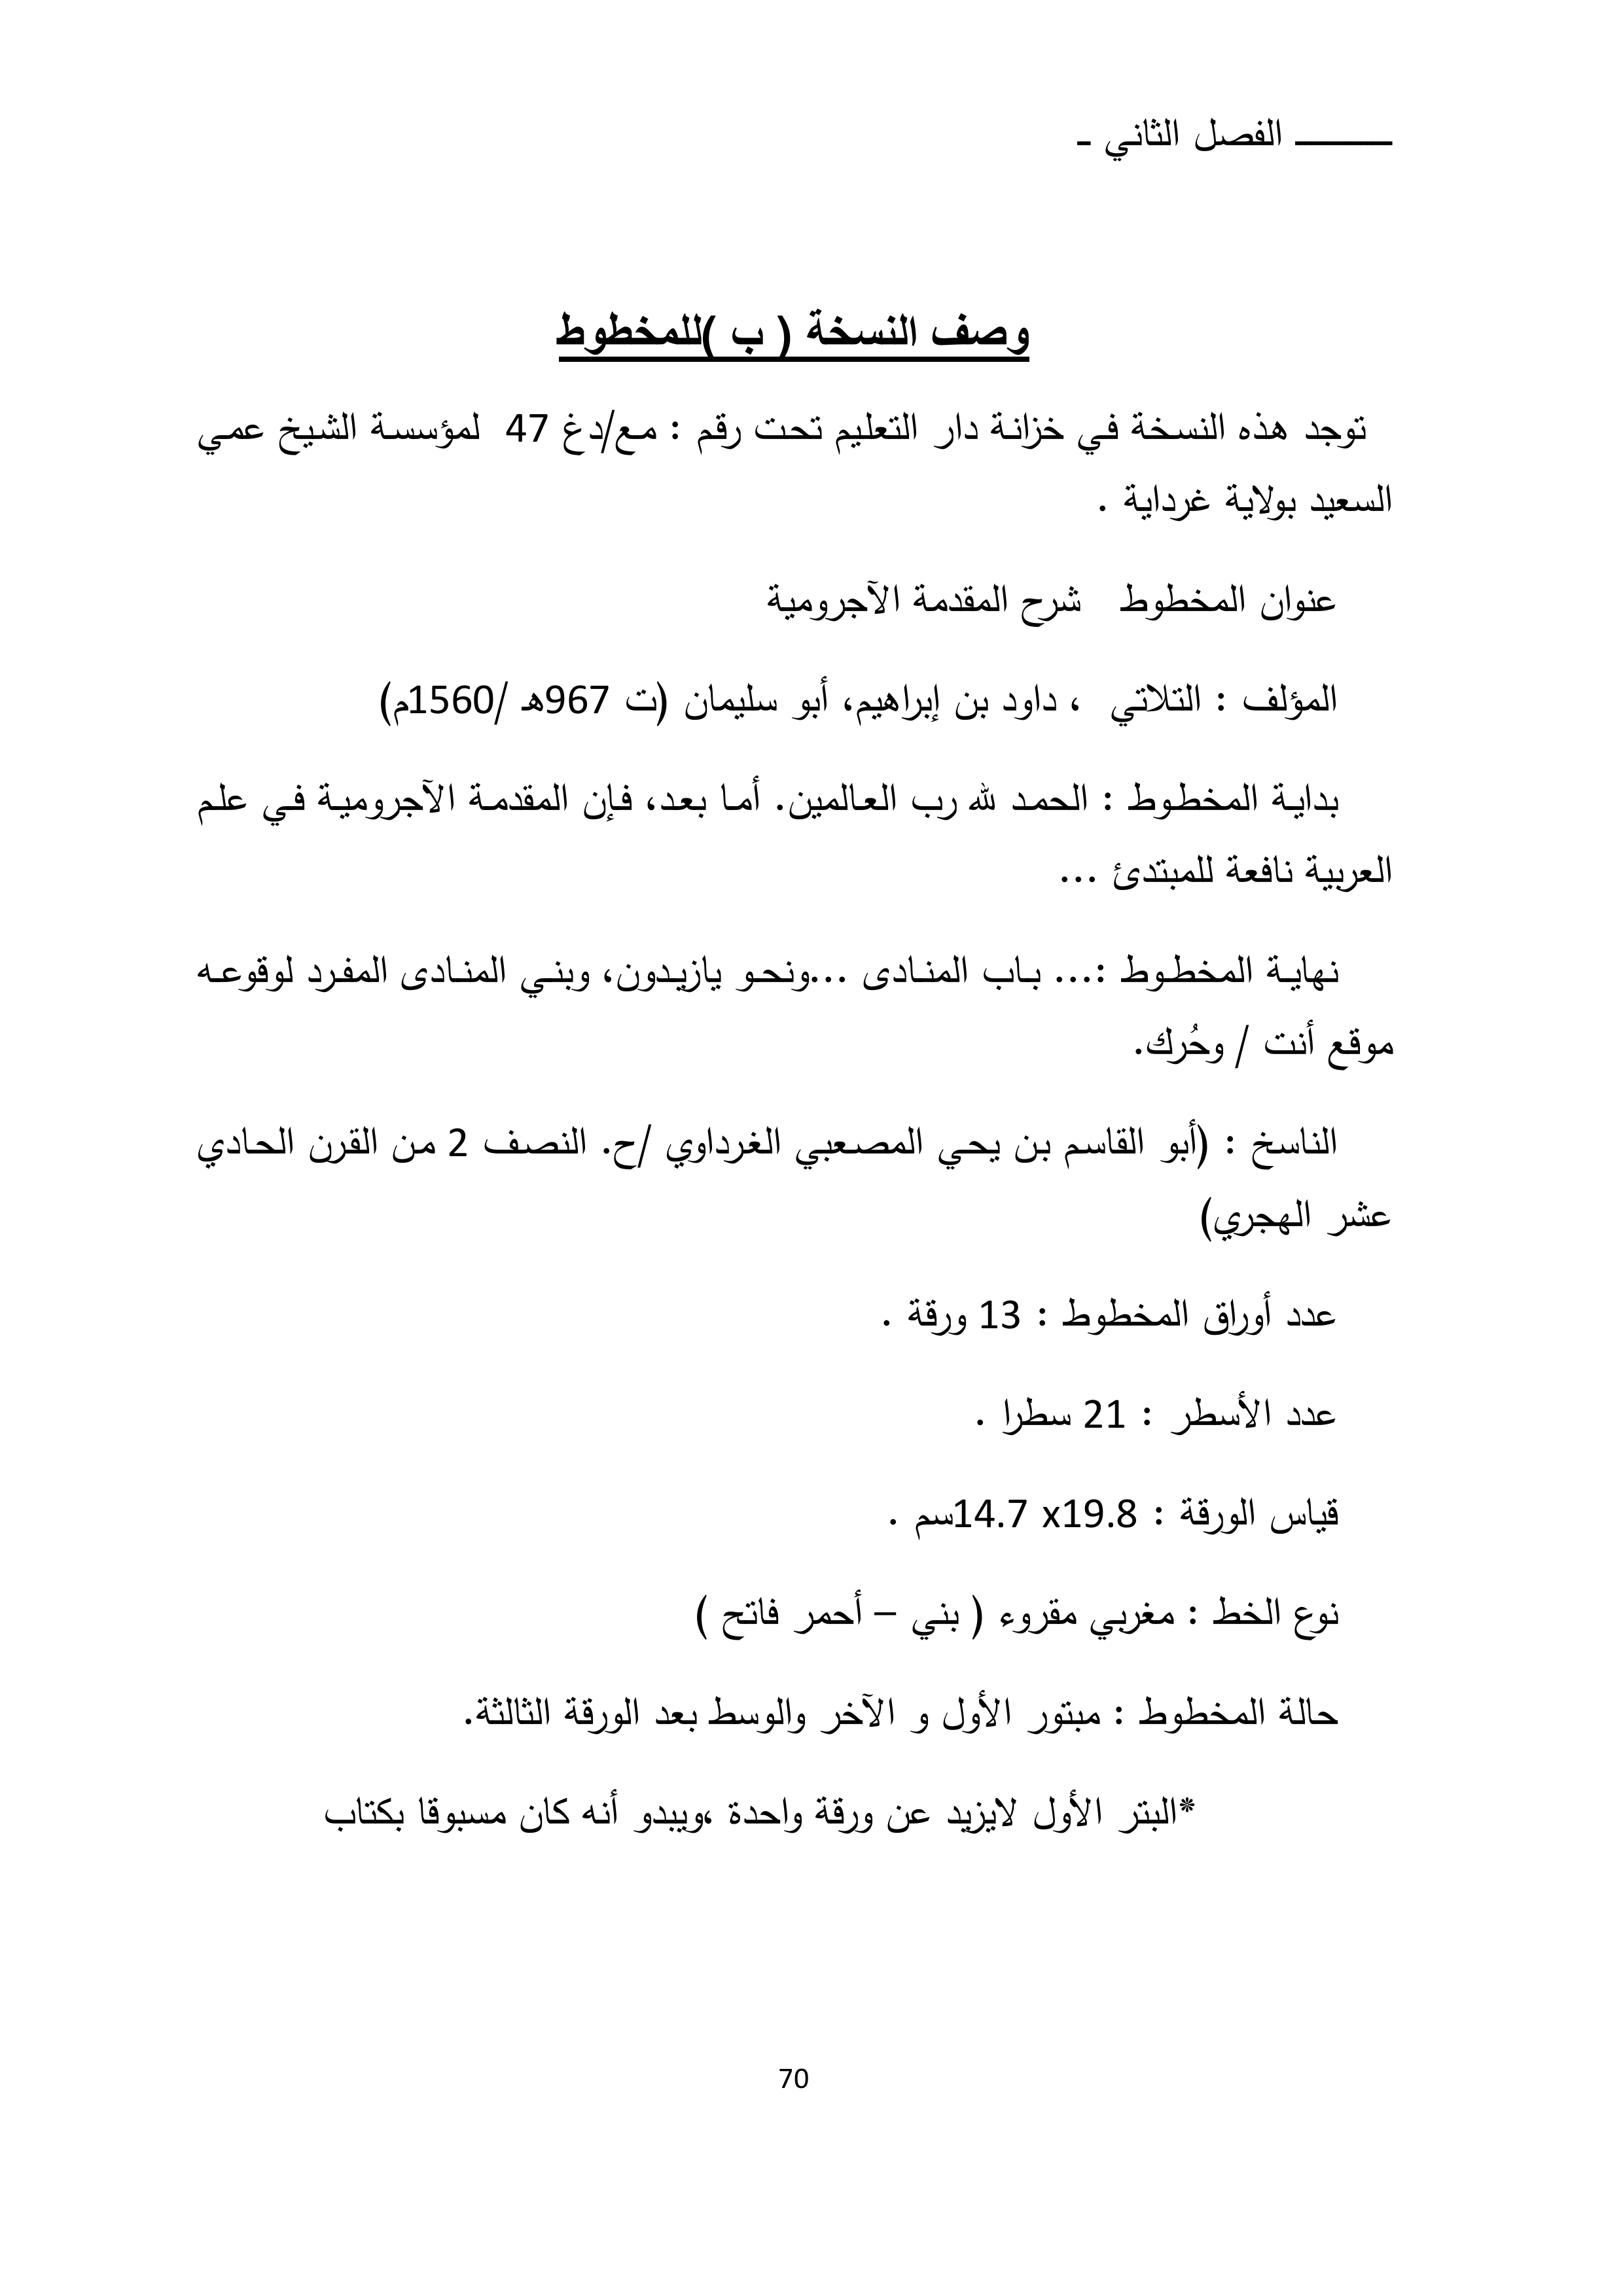 ـــــــــ الفصل الثاني ـ
وصف النسخة ( ب )للمخطوط
توجد هذه النسخة في خزانة دار التعليم تحت رقم : مع/دغ 47 لمؤسسة الشيخ عمي
السعيد بولاية غرداية .
عنوان المخطوط شرح المقدمة الآجرومية
المؤلف : التلاتي ، داود بن إبراهيم، أبو سليمان (ت 967هـ /1560م)
بداية المخطوط : الحمد لله رب العالمين. أما بعد، فإن المقدمة الآجرومية في علم
العربية نافعة للمبتدئ ...
نهاية المخطوط :... باب المنادى ...ونحو يازيدون، وبني المنادى المفرد لوقوعه
موقع أنت / وحُرك.
الناسخ : (أبو القاسم بن يحي المصعبي الغرداوي /ح. النصف 2 من القرن الحادي
عشر الهجري)
عدد أوراق المخطوط : 13 ورقة .
عدد الأسطر : 21 سطرا .
قياس الورقة : 14.7 x19.8سم .
نوع الخط : مغربي مقروء ( بني – أحمر فاتح )
حالة المخطوط : مبتور الأول و الآخر والوسط بعد الورقة الثالثة.
*البتر الأول لايزيد عن ورقة واحدة ،ويبدو أنه كان مسبوقا بكتاب
70